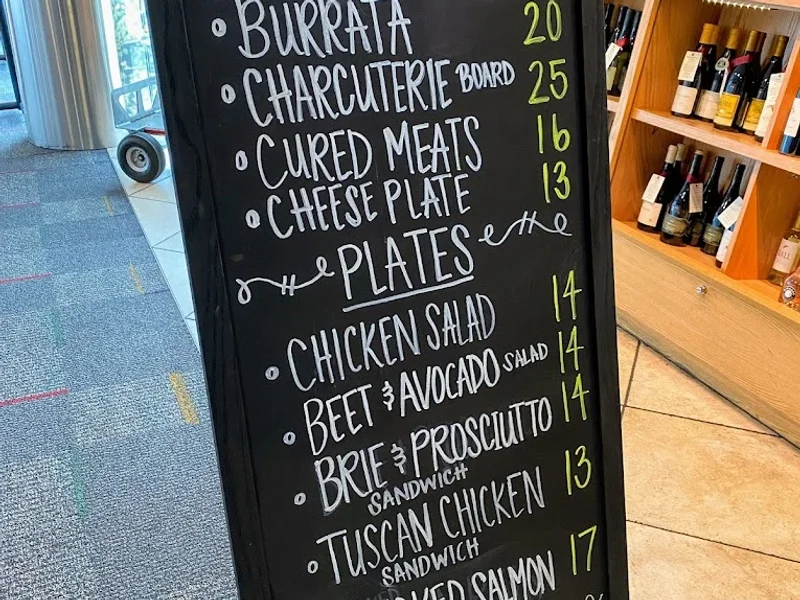 BURRATA 20
CHARCUTERIE BOARD 25
CURED MEATS 16
CHEESE PLATE 13
PLATES
CHICKEN SALAD 14
BEET & AVOCADO SALAD 14
BRIE & PROSCIUTTO 14
SANDWICH
TUSCAN CHICKEN 13
SANDWICH
SALMON 17